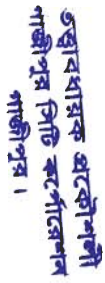 তত্ত্বাবধায়ক প্রকৌশলী
গাজীপুর সিটি কর্পোরেশন
গাজীপুর।